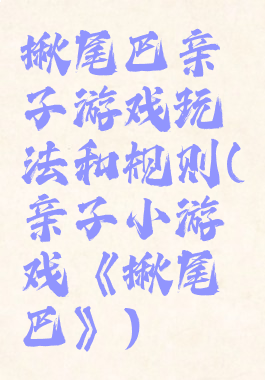 揪尾巴亲
子游戏玩
法和规则(
亲子小游
戏《揪尾
巴》)